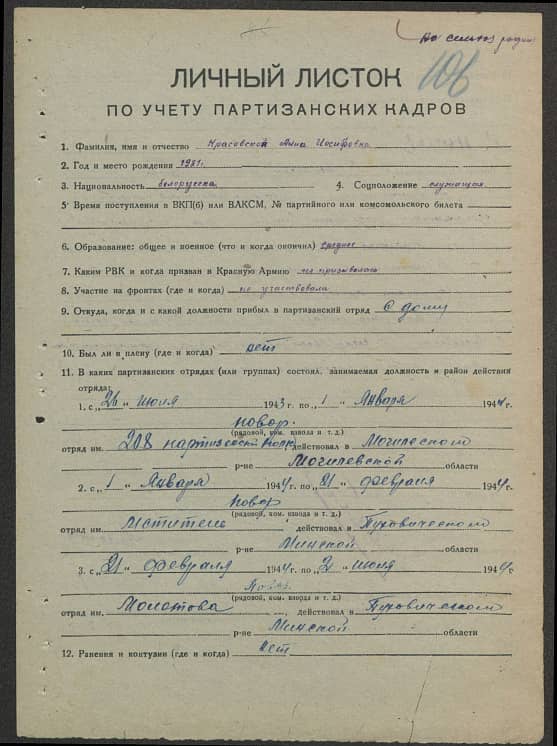 106
ЛИЧНЫЙ ЛИСТОК
ПО УЧЕТУ ПАРТИЗАНСКИХ КАДРОВ
1. Фамилия, имя и отчество Красовской Анна Иосифовна
2. Год и место рождения 1921г.
3. Национальность белорусска 4. Соцположение служащая
5. Время поступления в ВКП(б) или ВЛКСМ, № партийного или комсомольского билета
6. Образование: общее и военное (что и когда окончил) среднее
7. Каким РВК и когда призван в Красную Армию не призывалась
8. Участие на фронтах (где и когда) не участвовала
9. Откуда, когда и с какой должности прибыл в партизанский отряд с дому
10. Был ли в плену (где и когда) нет
11. В каких партизанских отрядах (или группах) состоял, занимаемая должность и район действия
отряда:
1. с „26 „ июля 1943 г. по „1 „ Января 1944 г.
повар.
(рядовой, ком. взвода и т. д.)
отряд им. 208 партизанск полк действовал в Могилевском
р-не Могилевской области
2. с „1 „ Января 1944 г. по „21 „ февраля 1944 г.
повар
(рядовой, ком. взвода и т. д.)
отряд им. Мститель действовал в Пуховическом
р-не Минской области
3. с „21 „ февраля 1944 г. по „2 „ июля 1944 г.
Повар
(рядовой, ком. взвода и т. д.)
отряд им. Молотова действовал в Пуховическом
р-не Минской области
12. Ранения и контузии (где и когда) нет